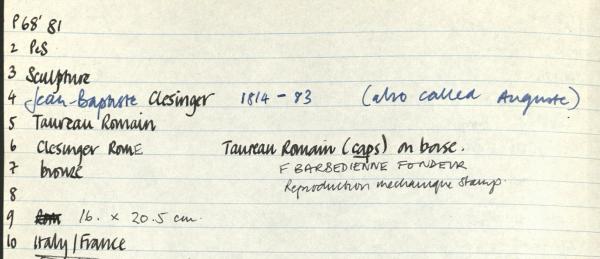 P68' 81
2 PcS
3 Sculpture
4 Jean-Baptiste Clesinger 1814 - 83 (also called Auguste)
5 Taureau Romain
6 Clesinger Rome Taureau Romain (caps) on base.
7 bronze F BARBEDIENNE FONDEUR
Reproduction mechanique stamp.
8
9 16. x 20.5 cm.
10 Italy/France